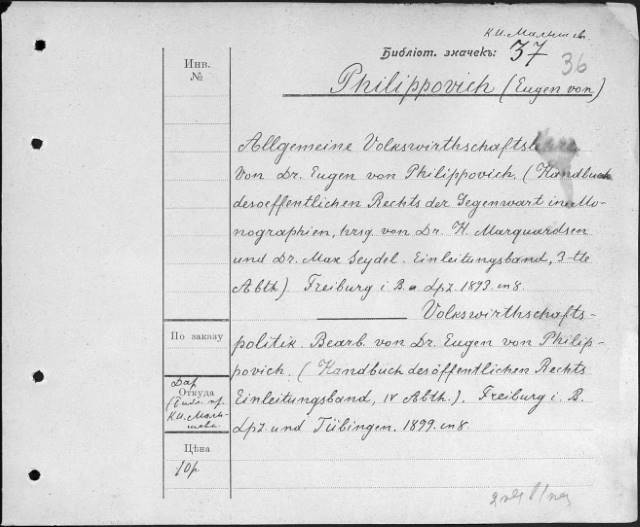 К.И. Малышев.
Библіот. значекъ: 37
36
Инв.
№
Philippovich (Eugen von)
Allgemeine Volkswirthschaftslehre
Von Dr. Eugen von Philippovich. (Handbuch
desoeffentlichen Rechts der Gegenwart in Mo-
nographien, hrsg. von Dr. H. Marquardsen
und Dr. Max Seydel. Einleitungsband, 3-tte
Abth) Freiburg i. B. u Lpz. 1893. in 8.
Volkswirthschafts-
По заказу
politik. Bearb. von Dr. Eugen von Philip-
povich. (Handbuch des öffentlichen Rechts
Даръ
Откуда
(Библ. пр.
К.И. Малы-
шева.
Einleitungsband, IV Abth.). Freiburg i. B.
Lpz. und Tübingen. 1899. in 8.
Цѣна
10р